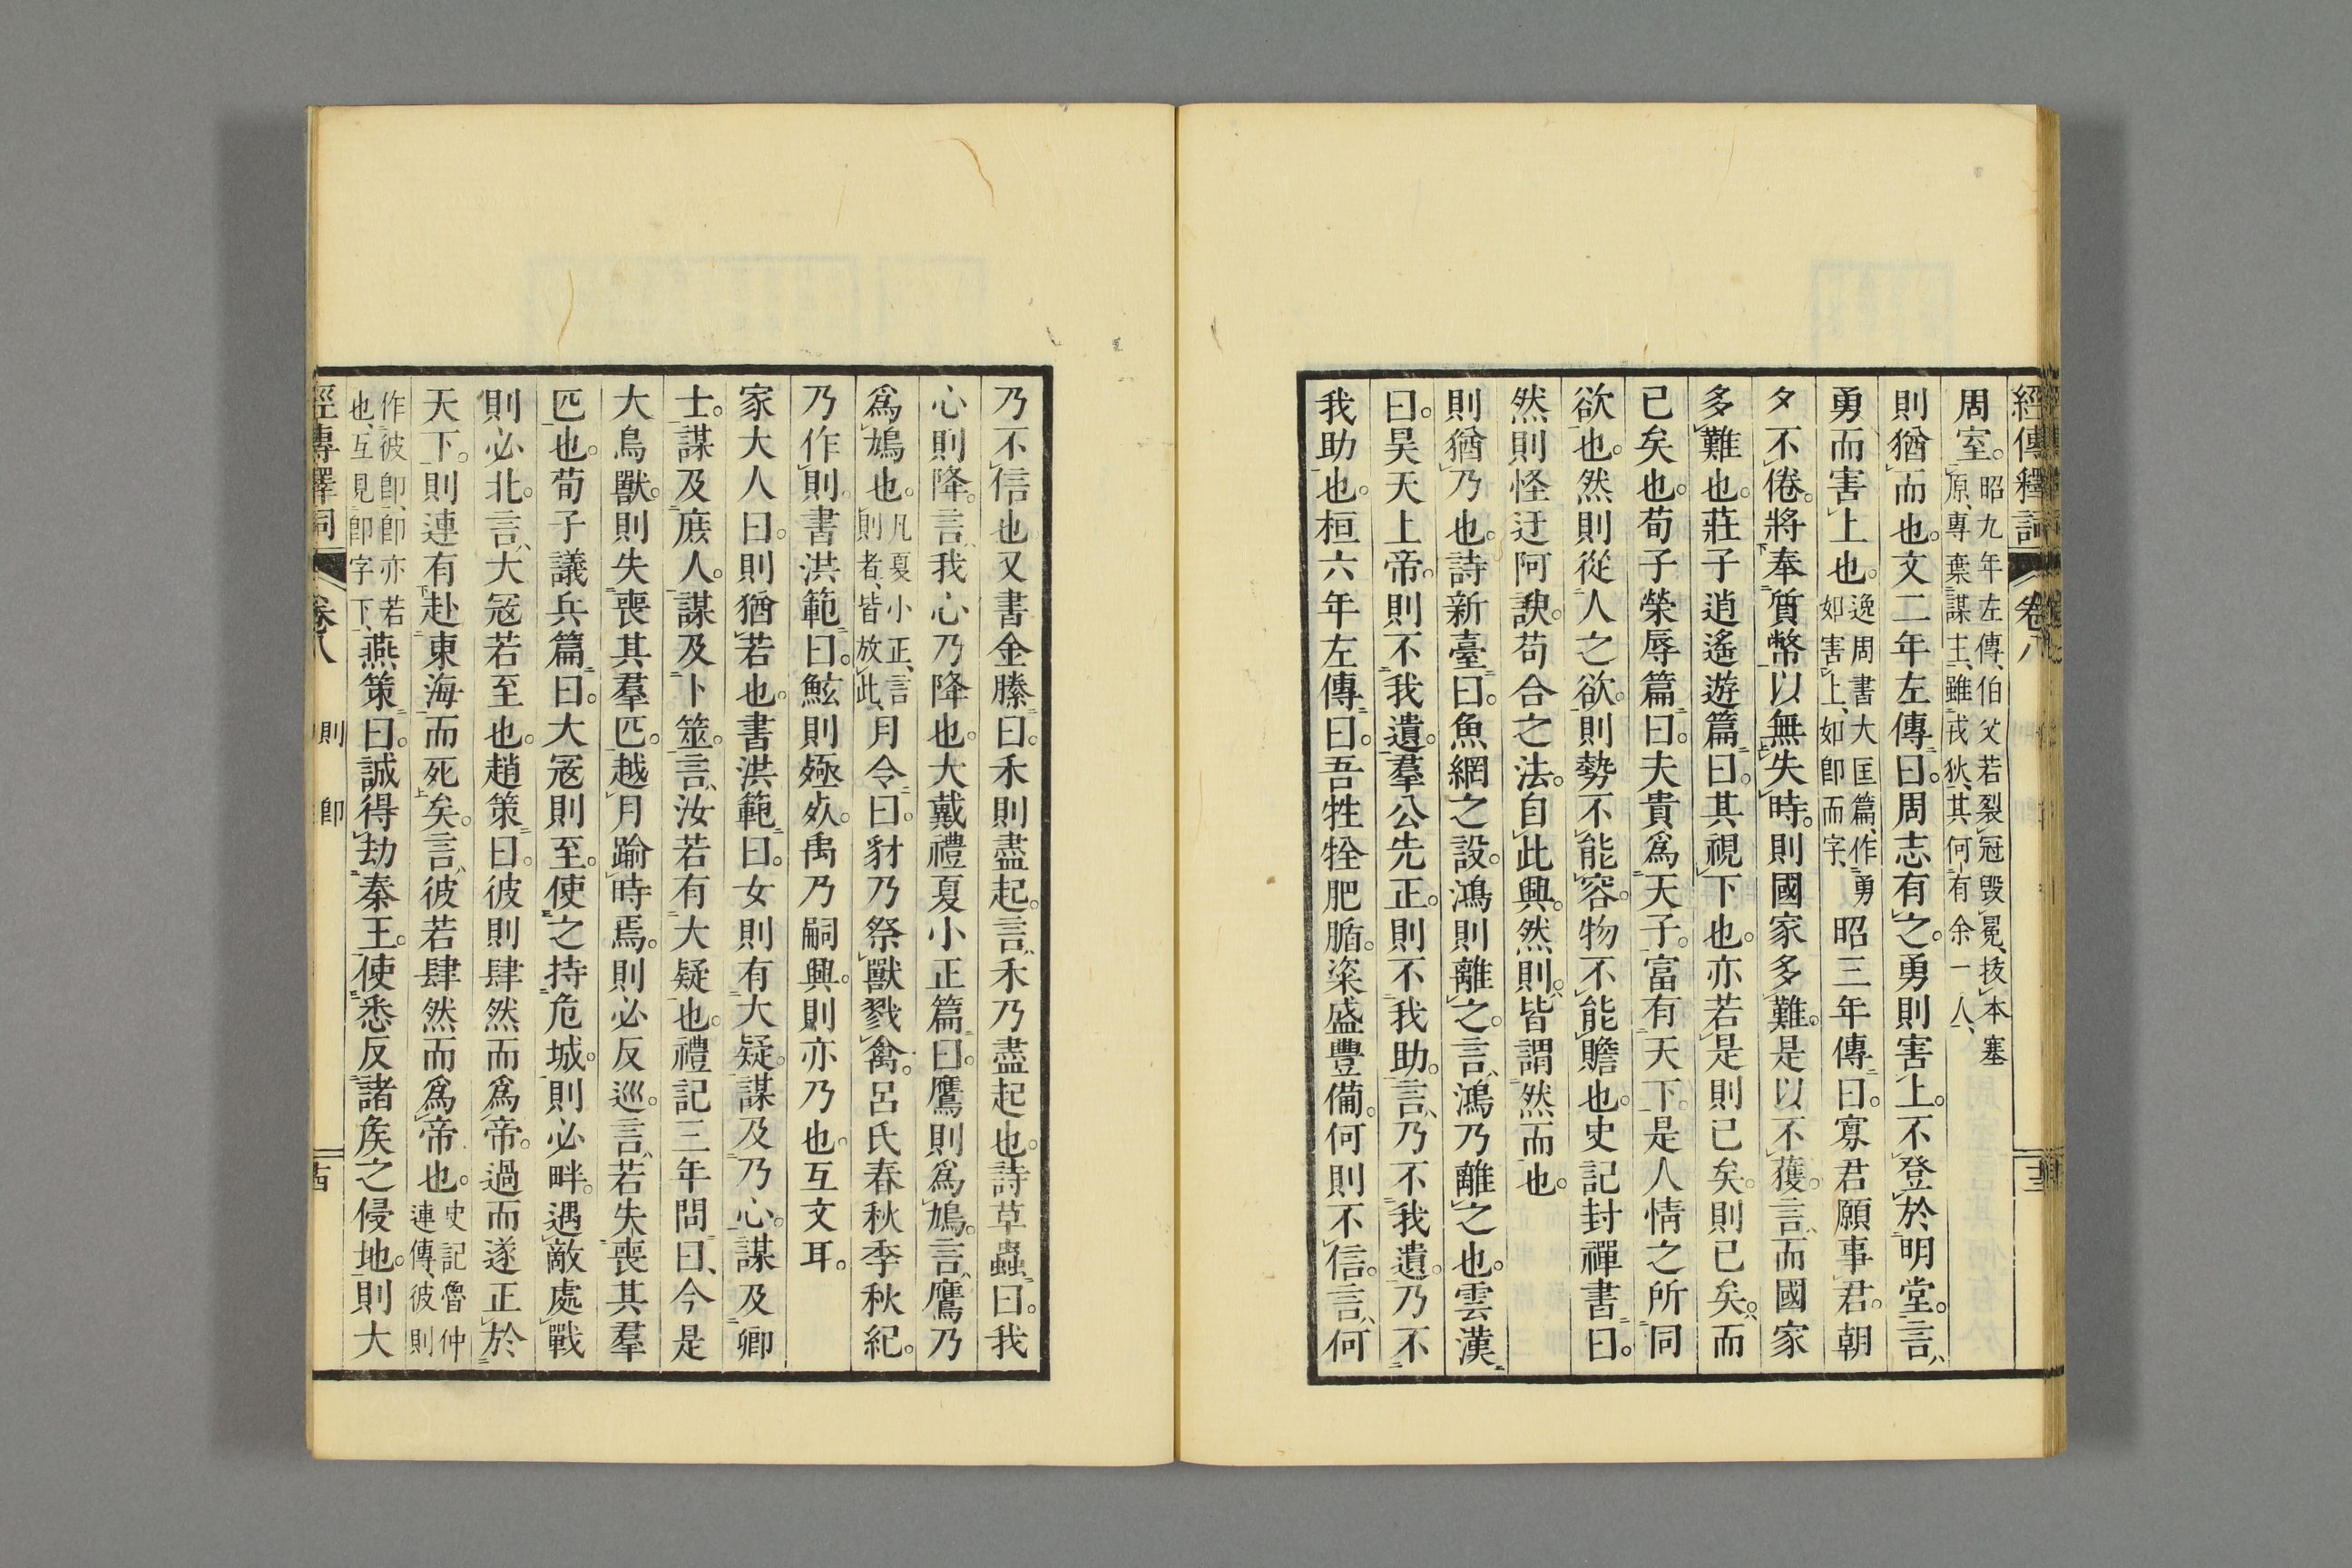 經傳釋詞 卷八 十三
周室。昭九年左傳、伯父若裂冠毀冕、拔本塞
原、專棄謀主、雖戎狄、其何有余一人、
則猶而也。文二年左傳曰。周志有之。勇則害上。不登於明堂。言、
勇而害上也。逸周書大匡篇、作勇
如害上、如卽而字、昭三年傳曰。寡君願事君。朝
夕不倦。將奉質幣以無失時。則國家多難。是以不獲。言、而國家
多難也。莊子逍遙遊篇曰。其視下也。亦若是則已矣。則已矣。而
已矣也。荀子榮辱篇曰。夫貴爲天子。富有天下。是人情之所同
欲也。然則從人之欲。則勢不能容。物不能贍也。史記封禪書曰。
然則怪迂阿諛。苟合之法。自此興。然則。皆謂然而也。
則猶乃也。詩新臺曰。魚網之設。鴻則離之。言、鴻乃離之也。雲漢
曰。昊天上帝。則不我遺。羣公先正。則不我助。言、乃不我遺。乃不
我助也。桓六年左傳曰。吾牲牷肥腯。粢盛豐備。何則不信。言、何
乃不信也又書金縢曰。禾則盡起。言、禾乃盡起也。詩草蟲曰。我
心則降。言、我心乃降也。大戴禮夏小正篇曰。鷹則爲鳩。言、鷹乃
爲鳩也。凡夏小正、言
則者、皆放此、月令曰。豺乃祭獸戮禽。呂氏春秋季秋紀。
乃作則。書洪範曰。鮌則殛死。禹乃嗣興。則亦乃也。互文耳。
家大人曰。則猶若也。書洪範曰。女則有大疑。謀及乃心。謀及卿
士。謀及庶人。謀及卜筮。言、汝若有大疑也。禮記三年問曰、今是
大鳥獸。則失喪其羣匹。越月踰時焉。則必反巡。言、若失喪其羣
匹也。荀子議兵篇曰。大寇則至。使之持危城。則必畔。遇敵處戰
則必北。言、大寇若至也。趙策曰。彼則肆然而爲帝。過而遂正於
天下。則連有赴東海而死矣。言、彼若肆然而爲帝也。史記魯仲
連傳、彼則
作彼卽、卽亦若
也、互見卽字下、燕策曰。誠得劫秦王。使悉反諸矦之侵地。則大
經傳釋詞 卷八 則 卽 十四